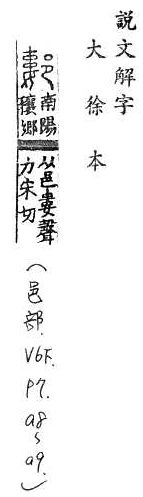 説文解字
大徐本
𨞪南陽穰鄉
从邑婁聲
力朱切
(邑部.V6下.P7.a8~a9.)